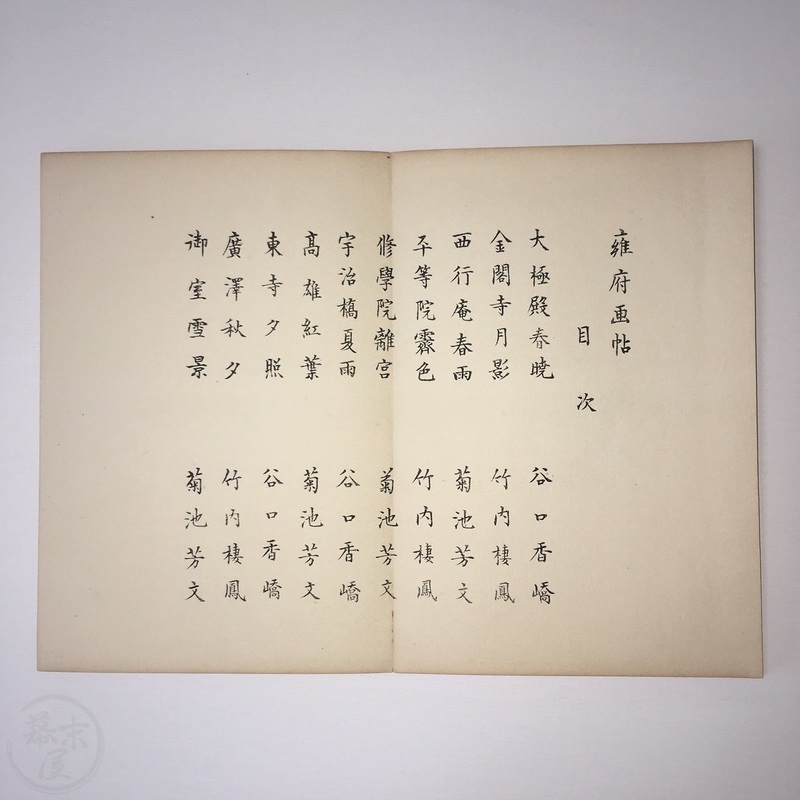 雍府画帖
目次
大極殿春曉 谷口香嶠
金閣寺月影 竹内棲鳳
西行庵春雨 菊池芳文
平等院霽色 竹内棲鳳
修學院離宮 菊池芳文
宇治橋夏雨 谷口香嶠
高雄紅葉 菊池芳文
東寺夕照 谷口香嶠
廣澤秋夕 竹内棲鳳
御室雪景 菊池芳文
幕末屋